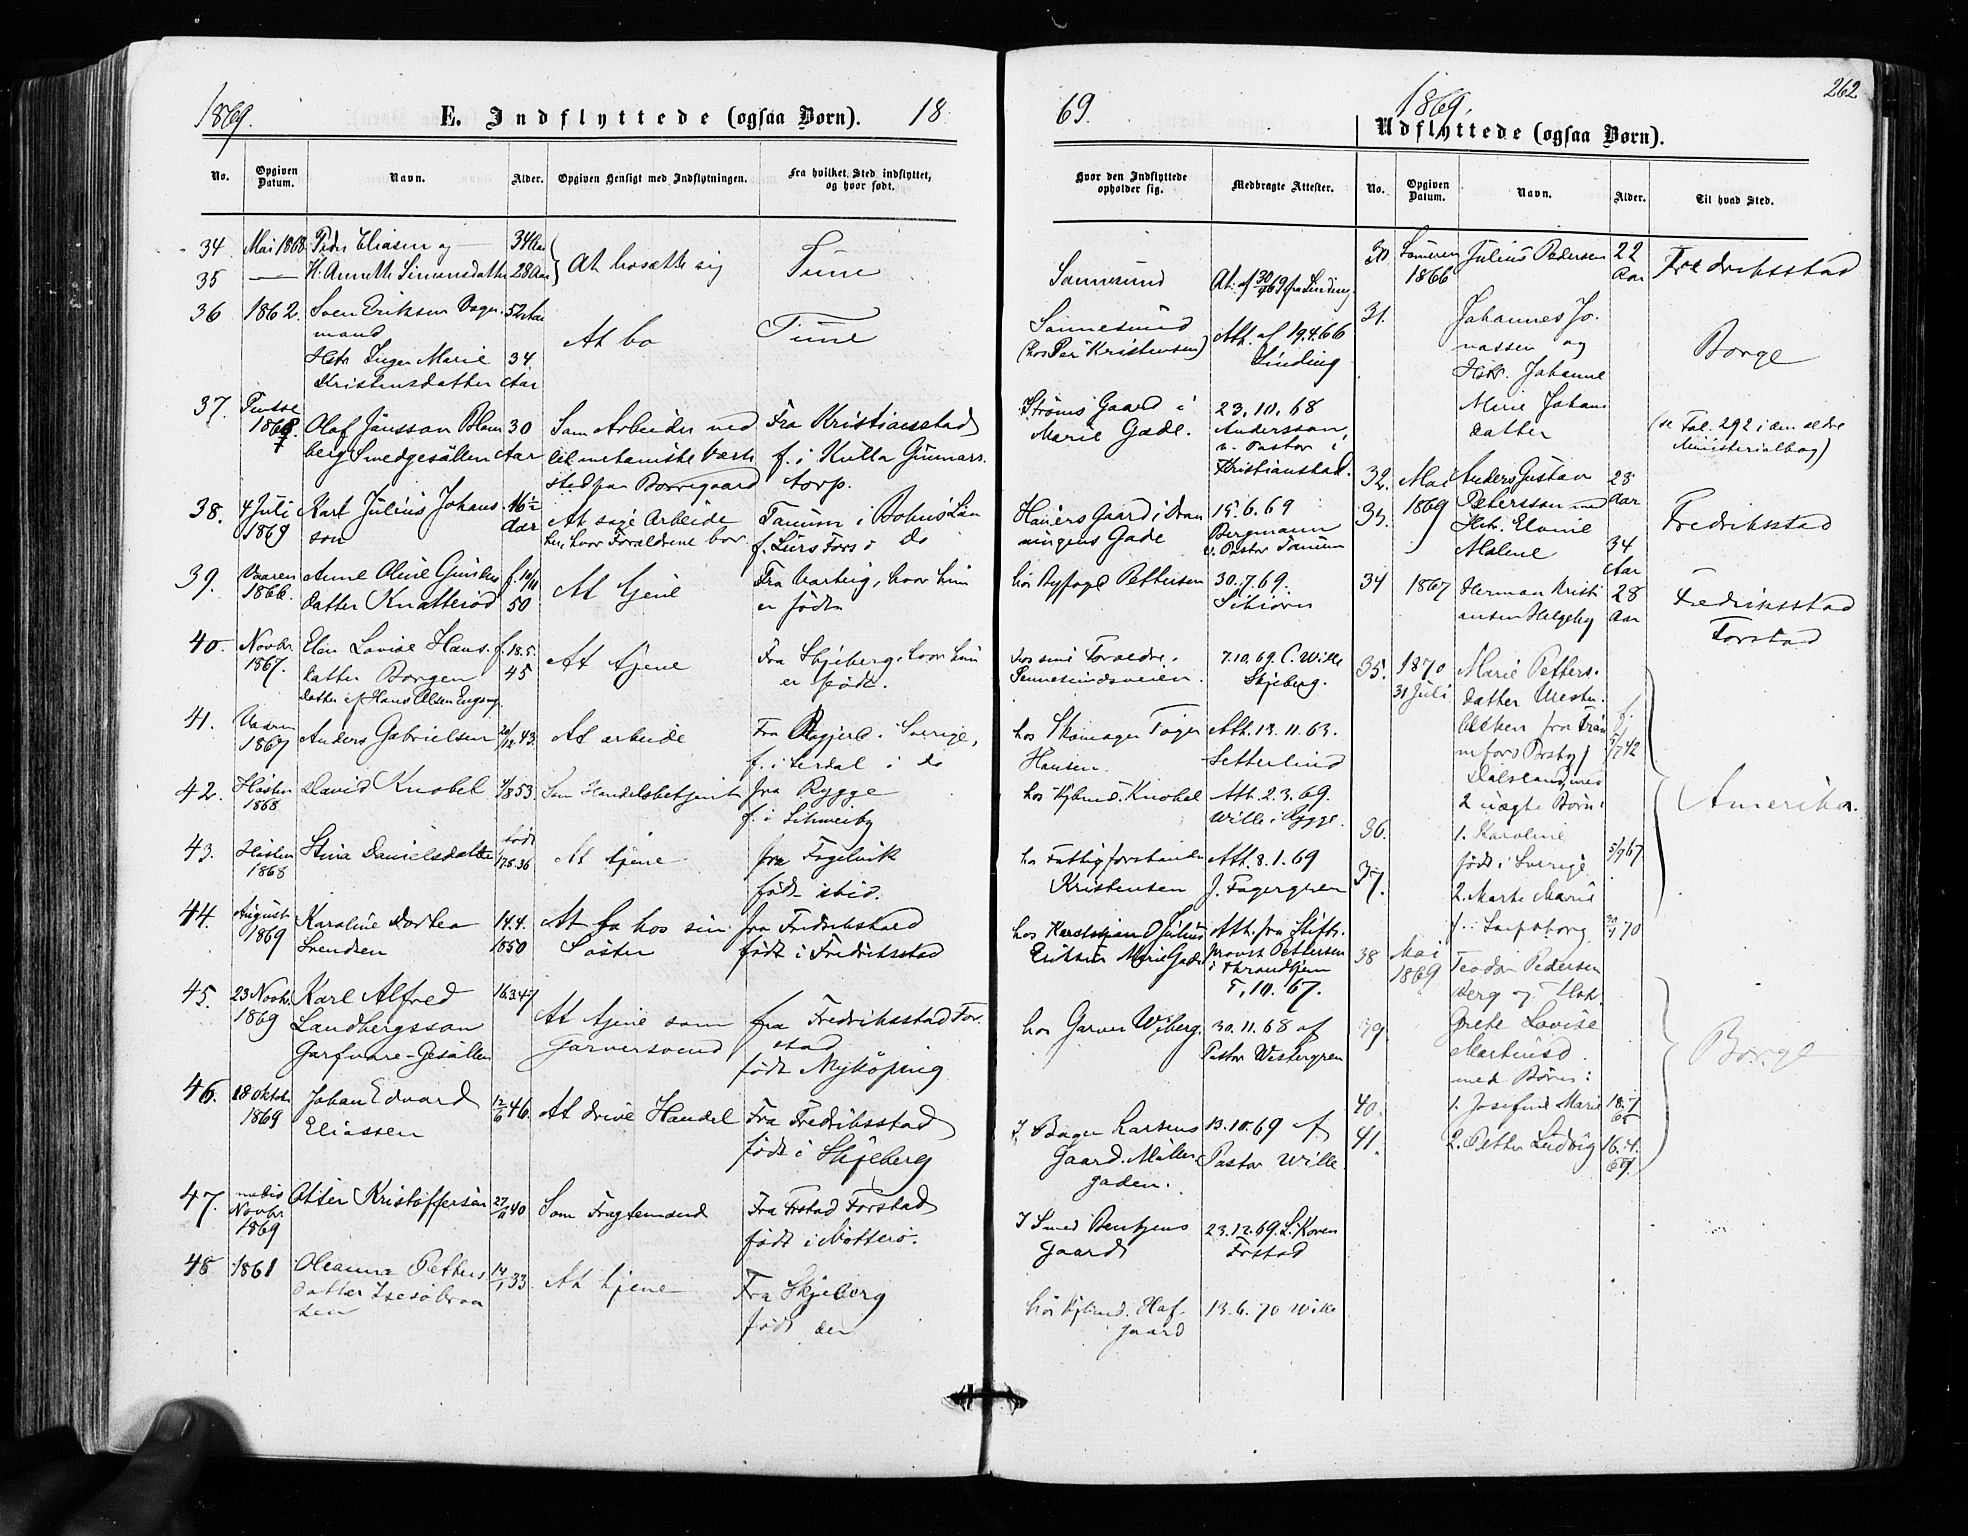 1869.
E. Indflyttede (ogsaa Børn). 18
69.
1869.
262
Udflyttede (ogsaa Børn).
No.
Opgiven Datum.
Navn.
Alder.
Opgiven Hensigt med Indflytningen.
Fra hvilket Sted indflyttet, og hvor født.
Hvor den Indflyttede opholder sig.
Medbragte Attester.
No.
Opgiven Datum.
Navn.
Alder.
Til hvad Sted.
34 Mai 1868 Peder Eliasen og 34 Aar
35 — H. Annette Simensdatter 28 Aar
At bosætte sig Tune
Sannesund At. af 30/ 69 fra Linding
36 1862. Sven Eriksen 52 Aar
mand
Hstr Inger Marie 34
Kristensdatter Aar
At bo Tune
Sannesund
(hos Per Kristensen)
Att. af 19.4.66
Linding
37. Pintse
Olaf Jönsson Blom 30
berg Smedgesällen Aar
Som Arbeider ved
det mekaniske Værk
sted paa Borregaard
Fra Kristianstad
f. i Kulla Gunnars
torp.
Ströms Gaard i
Marie Gade.
23.10.68
Andersson,
v. Pastor i
Kristianstad.
38. 4 Juli
1869
Karl Julius Johans
son
16½
Aar
At søge Arbeide
her, hvor Forældrene bor
Tanum i Bohus Län
f. Lurs Fors i do
Gaard i Dron
ningens Gade
15.6.69
Bergmann
v. Pastor Tanum
39. Vaaren
1866.
Anne Oline Gunders
datter Knatterød
f. 10/11
50
At tjene
Fra Varteig, hvor hun
er født
hos Byfoged Pettersen
30.7.69.
40. Novbr.
1867.
Elen Lovise Hans.
datter Borgen
datter af Hans Olsen
f. 18.5.
45
At tjene
Fra Skjeberg, hvor hun
er født.
hos sine Forældre.
Sannesundsveien.
7.10.69. C. Wille
Skjeberg.
41. Vaaren
1867
Anders Gabrielsen 20/12 43.
At arbeide
Fra i Sverige,
f. i Lerdal i do
hos Skomager
Hansen.
Att. 13.11.63.
Setterlind
42. Høsten
1868
David Knobel 4/8 53.
Som Handelsbetjent
fra Rygge
f. i
hos Kjbmd. Knobel
Att. 2.3.69.
Wille i Rygge.
43. Høsten
1868
Stina Danielsdatter
født
17.8.36
At tjene
fra Fogelvik
født ibid.
hos Fattigforstander
Kristensen
Att. 8.1.69
J. Fagergren
44. August
1869
Karoline Dortea
Svendsen
14.4.
1850
At bo hos sin
Søster
fra Fredrikstad
født i Fredriksstad
hos Julius
Eriksen Marie Gade
Att. fra Stifts.
provst Pettersen
i Throndhjem
5.10.67.
45. 23 Novbr.
1869
Karl Alfred
Landbergsson
Garfvare-Gesällen
16.3.47
At tjene som
Garversvend
fra Fredriksstad For
stad
født Nyköping
hos Garver Wiberg.
30.11.68 af
Pastor Westergren
46. 18 Oktober
1869
Johan Edvard
Eliassen
12/6 46.
At drive Handel
Fra Fredriksstad
født i Skjeberg
I Bager Larsens
Gaard. Møller
gaden.
13.10.69 af
Pastor Wille
47. medio
Novbr.
1869
Otter Kristoffersen 27/11 40
Som Fragtemand
Fra Frstad Forstad
født i Nøtterø.
I Smed Bentzens
Gaard
23.12.69. L. Koren
Frstad
48 1861
Oleanna Petters
datter
14/1 33.
At tjene
Fra Skjeberg
født der
hos Kjbmd. Haf.
gaard
13.6.70 Wille
30 Sommeren
1866
Julius Pedersen 22
Aar
Fredriksstad
31.
Johannes Jo.
nassen og
Hstr. Johanne
Marie Johan
datter
Borge
(se Fol. 292 i den ældre
Ministerialbog)
32. Mai
33. 1869
Anders Gustav 28
Petersson med Aar
Hstr. Elonie
Malene 34
Aar
Fredriksstad
34 1867
Herman Kristi 28
ansen Helgeby Aar
Fredriksstad
Forstad
35. 1870
31 Juli
Marie Petters.
datter
fra
Dalsland, med
2 uægte Børn:
f.
5/7 42
Amerika.
36.
1. Karoline
født i Sverige 5/9 67
37.
2. Marte Marie
f. i Sarpsborg 70
38 Mai
1869
Teodor Pedersen
Berg og Hstr.
39.
Grete Lovise
Martinsd.
med Børn:
Borge
40. 1. Josefine Marie 18.7
65
41. 2. Petter Ludvig 16.4.
67